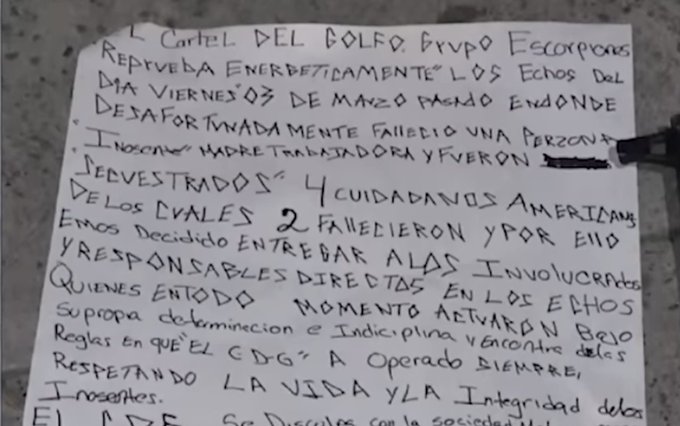 L Cartel DEL GOLFO. Grupo Escorpiones
REPRUEBA ENERGETICAMENTE" LOS Echos DEL
DIA VIERNES" 03 DE MARZO PASADO ENDONDE
DESAFORTUNADAMENTE FALLECIO UNA PERZONA
"INOSENTE" MADRE TRABAJADORA Y FUERON
SECUESTRADOS" 4 CUIDADANOS AMERICANS
DE LOS CUALES 2 FALLECIERON Y POR ELLO
EMOS DECIDIDO ENTREGAR A LOS INVOLUCRADOS
Y RESPONSABLES DIRECTOS EN LOS ECHOS
QUIENES EN TODO MOMENTO ACTUARON BAJO
Su propia determinacion e Indiciplina y encontra delas
Reglas EN QUE "EL CDG" A Operado SIEMPRE,
RESPETANDO LA VIDA Y LA Integridad delos
Inosentes.
EL Se Disculpa con la sociedad